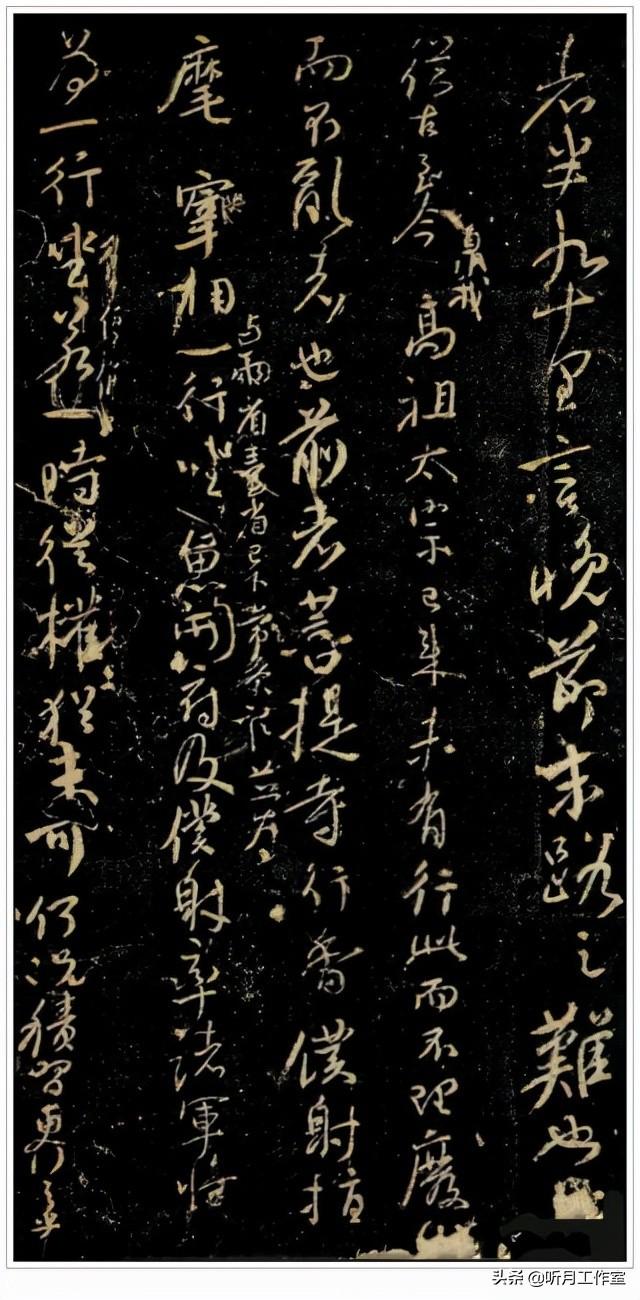 者半九十里言晚節末路之難也
從古至今臮我高祖太宗已來未有行此而不理廢
而不亂者也前者菩提寺行香僕射指
麾宰相與兩省臺省已下常參官並為一行坐魚開府及僕射率諸軍將
為一行坐若一時從權猶未可何況積習更行之乎
头条 @听月工作室